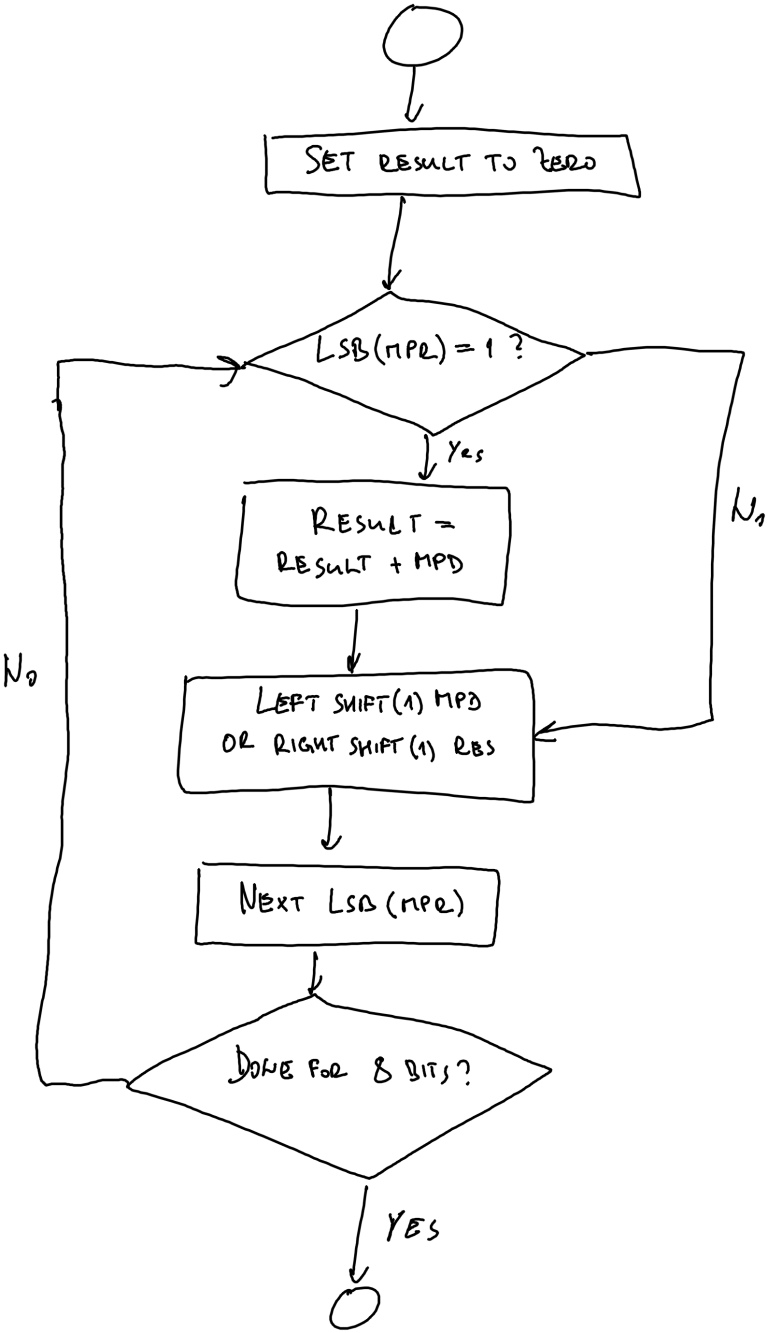 SET RESULT TO ZERO
LSB(MPR) = 1 ?
Yes
No
RESULT =
RESULT + MPD
No
LEFT SHIFT(1) MPD
OR RIGHT SHIFT(1) RES
NEXT LSB(MPR)
DONE FOR 8 BITS?
YES